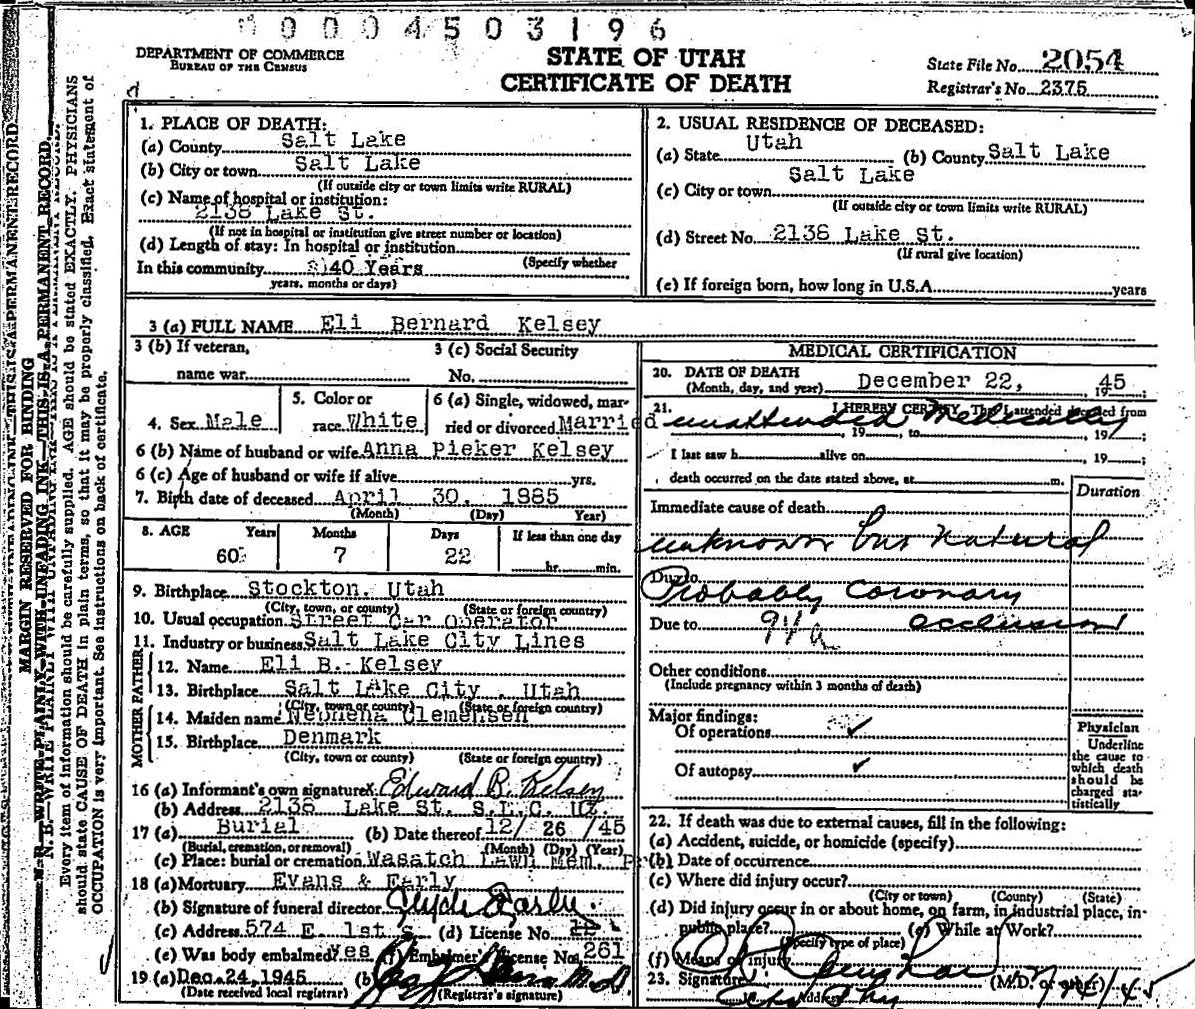 0004503196
DEPARTMENT OF COMMERCE
BUREAU OF THE CENSUS
STATE OF UTAH
CERTIFICATE OF DEATH
State File No. 2054
Registrar's No. 2375
MARGIN RESERVED FOR BINDING
N. B.—WRITE PLAINLY WITH UNFADING INK—THIS IS A PERMANENT RECORD.
Every item of information should be carefully supplied. AGE should be stated EXACTLY. PHYSICIANS
should state CAUSE OF DEATH in plain terms, so that it may be properly classified. Exact statement of
OCCUPATION is very important. See instructions on back of certificate.
1. PLACE OF DEATH:
(a) County Salt Lake
(b) City or town Salt Lake
(If outside city or town limits write RURAL)
(c) Name of hospital or institution:
2138 Lake St.
(If not in hospital or institution give street number or location)
(d) Length of stay: In hospital or institution
(Specify whether
In this community 40 Years
years, months or days)
2. USUAL RESIDENCE OF DECEASED:
(a) State Utah (b) County Salt Lake
(c) City or town Salt Lake
(If outside city or town limits write RURAL)
(d) Street No. 2138 Lake St.
(If rural give location)
(e) If foreign born, how long in U.S.A. years
3 (a) FULL NAME Eli Bernard Kelsey
3 (b) If veteran, name war
3 (c) Social Security No.
4. Sex Male
5. Color or race White
6 (a) Single, widowed, married or divorced Married
6 (b) Name of husband or wife Anna Pieker Kelsey
6 (c) Age of husband or wife if alive yrs.
7. Birth date of deceased April 30, 1885
(Month) (Day) Year)
8. AGE Years Months Days If less than one day
60 7 22 hr. min.
9. Birthplace Stockton, Utah
(City, town, or county) (State or foreign country)
10. Usual occupation Street Car Operator
11. Industry or business Salt Lake City Lines
FATHER
12. Name Eli B. Kelsey
13. Birthplace Salt Lake City, Utah
(City, town or county) (State or foreign country)
MOTHER
14. Maiden name Clemensen
15. Birthplace Denmark
(City, town or county) (State or foreign country)
16 (a) Informant's own signature Edward B. Kelsey
(b) Address 2138 Lake St. S.L.C. Ut.
17 (a) Burial (b) Date thereof 12/ 26 /45
(Burial, cremation, or removal) (Month) (Day) (Year)
(c) Place: burial or cremation Wasatch Lawn Mem.
18 (a) Mortuary Evans & Early
(b) Signature of funeral director Clyde Early
(c) Address 574 E 1st S. (d) License No.
(e) Was body embalmed? Yes (f) Embalmer's License No. 261
19 (a) Dec. 24, 1945 (b) M.D.
(Date received local registrar) (Registrar's signature)
MEDICAL CERTIFICATION
20. DATE OF DEATH
(Month, day, and year) December 22, 1945
21. I HEREBY CERTIFY, That I attended deceased from
unattended Medically
19 , to 19 ;
I last saw h alive on , 19 ;
death occurred on the date stated above, at m.
Duration
Immediate cause of death
unknown but Natural
Due to
Probably Coronary
Due to 94a occlusion
Other conditions
(Include pregnancy within 3 months of death)
Major findings:
Of operations ✓
Of autopsy ✓
Physician
Underline
the cause to
which death
should be
charged sta-
tistically
22. If death was due to external causes, fill in the following:
(a) Accident, suicide, or homicide (specify)
(b) Date of occurrence
(c) Where did injury occur?
(City or town) (County) (State)
(d) Did injury occur in or about home, on farm, in industrial place, in
public place? (e) While at Work?
(Specify type of place)
(f) Means of injury
23. Signature (M.D. or other)
Address